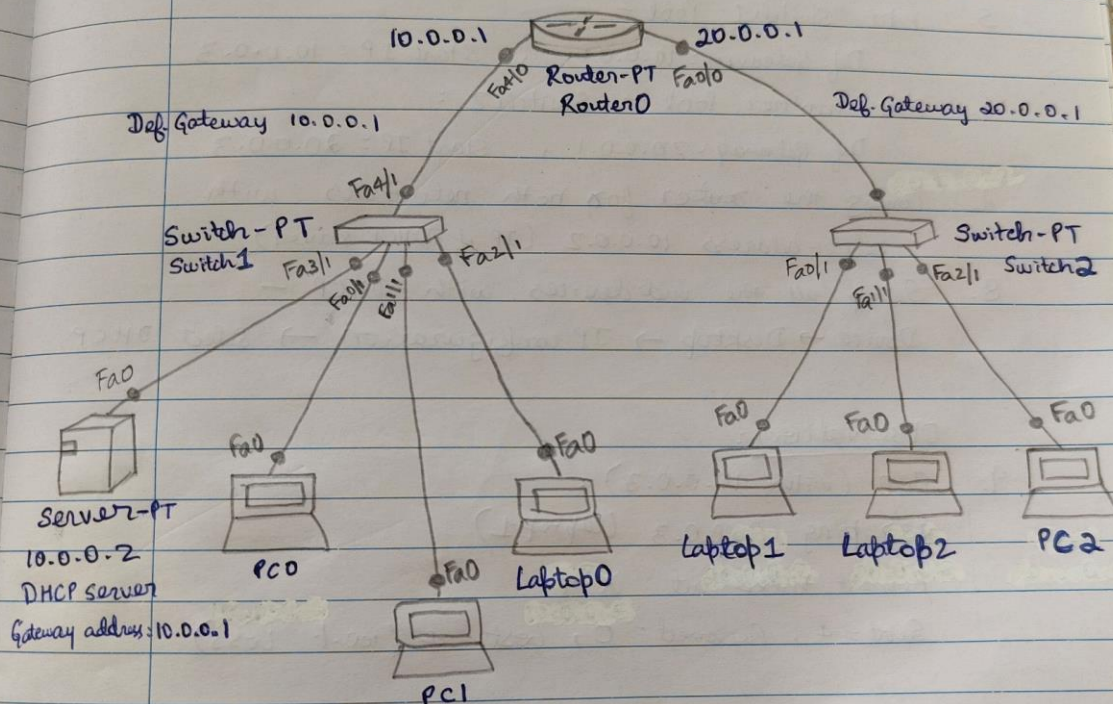 10.0.0.1
20.0.0.1
Fa4/0
Router-PT
Fa0/0
Router0
Def. Gateway 10.0.0.1
Def. Gateway 20.0.0.1
Fa4/1
Switch-PT
Switch1
Fa3/1
Fa0/1
Fa1/1
Fa2/1
Switch-PT
Switch2
Fa0/1
Fa1/1
Fa2/1
Fa0
Fa0
Fa0
Fa0
Fa0
Fa0
Server-PT
10.0.0.2
DHCP server
Gateway address: 10.0.0.1
PC0
Fa0
Laptop0
Laptop1
Laptop2
PC2
PC1